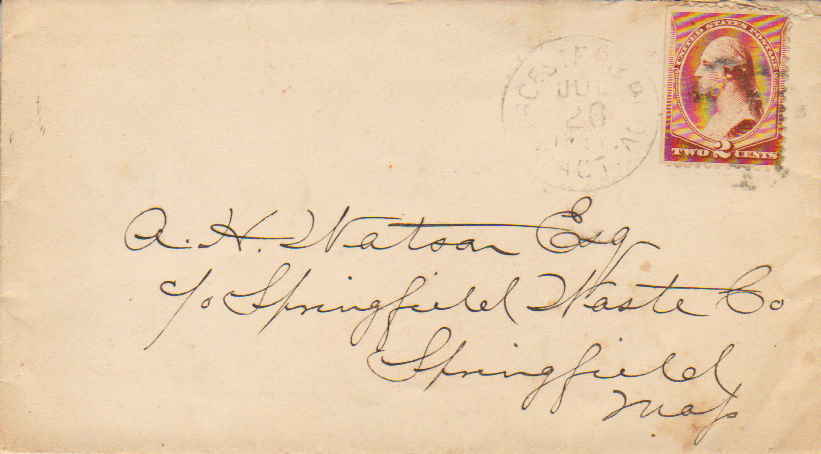 UNITED STATES POSTAGE
TWO 2 CENTS
JUL
20
A. H. Watson Esq
c/o Springfield Waste Co
Springfield
Mass